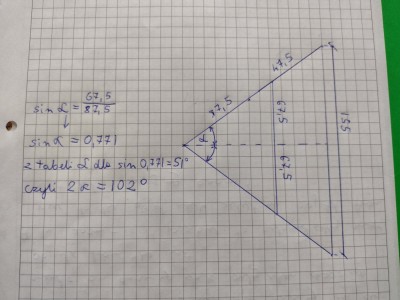 sin α = 67,5
87,5
sin α = 0,771
z tabeli α dla sin 0,771 = 51°
czyli 2α = 102°
37,5
47,5
α
67,5
67,5
155